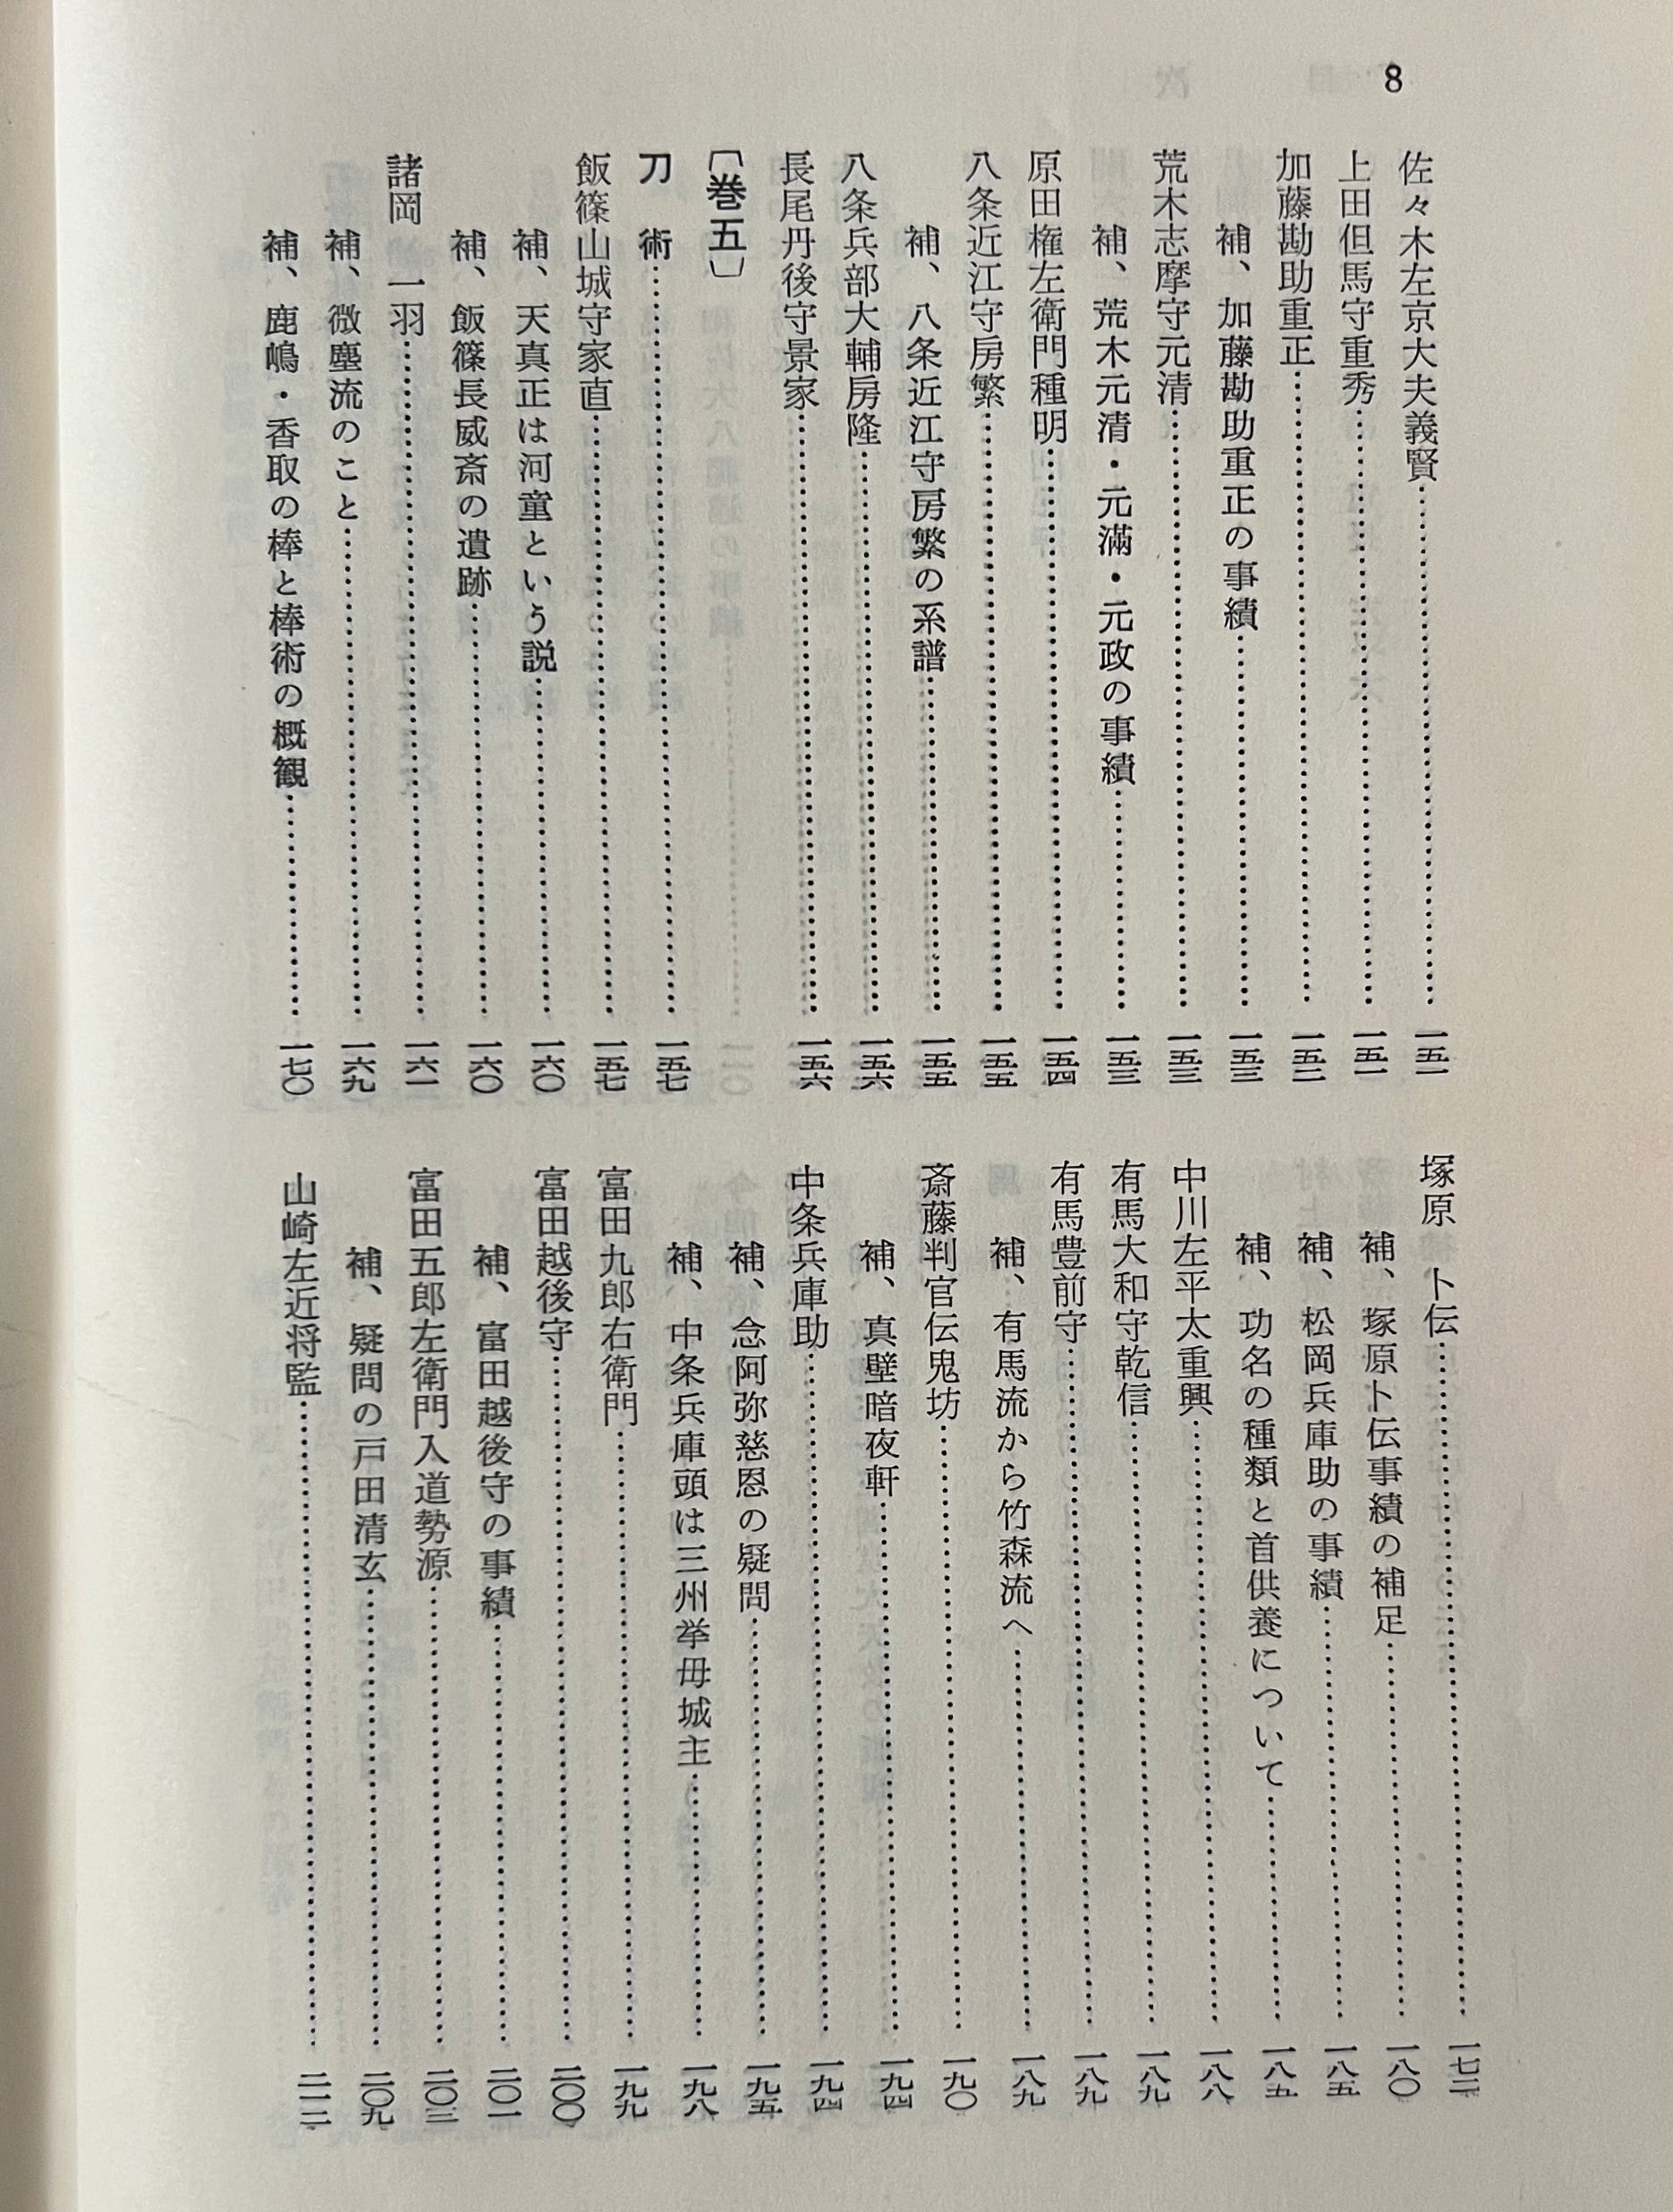 8
佐々木左京大夫義賢……一五一
上田但馬守重秀……一五一
加藤勘助重正……一五二
補、加藤勘助重正の事績……一五三
荒木志摩守元清……一五三
補、荒木元清・元満・元政の事績……一五三
原田権左衛門種明……一五四
八条近江守房繁……一五五
補、八条近江守房繁の系譜……一五五
八条兵部大輔房隆……一五六
長尾丹後守景家……一五六
〔巻五〕
刀　術……一五七
飯篠山城守家直……一五七
補、天真正は河童という説……一六〇
補、飯篠長威斎の遺跡……一六〇
諸岡　一羽……一六一
補、微塵流のこと……一六九
補、鹿嶋・香取の棒と棒術の概観……一七〇
塚原　卜伝……一七二
補、塚原卜伝事績の補足……一八〇
補、松岡兵庫助の事績……一八五
補、功名の種類と首供養について……一八五
中川左平太重興……一八八
有馬大和守乾信……一八九
有馬豊前守……一八九
補、有馬流から竹森流へ……一八九
斎藤判官伝鬼坊……一九〇
補、真壁暗夜軒……一九四
中条兵庫助……一九四
補、念阿弥慈恩の疑問……一九五
補、中条兵庫頭は三州挙母城主……一九八
富田九郎右衛門……一九九
富田越後守……二〇〇
補、富田越後守の事績……二〇一
富田五郎左衛門入道勢源……二〇三
補、疑問の戸田清玄……二〇九
山崎左近将監……二一二